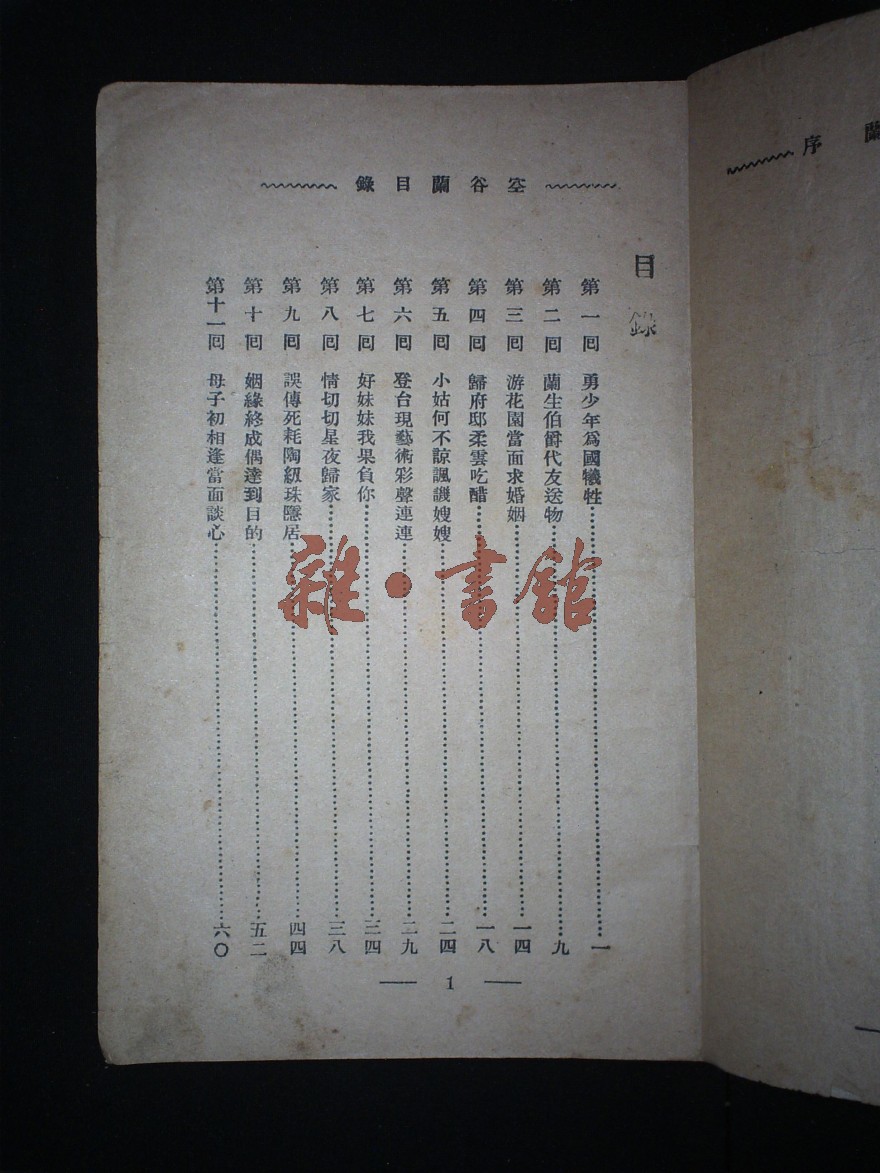 蘭 序
空谷蘭目錄
目錄
第一回 勇少年爲國犧牲 一
第二回 蘭生伯爵代友送物 九
第三回 游花園當面求婚姻 一四
第四回 歸府邸柔雲吃醋 一八
第五回 小姑何不諒諷譏嫂嫂 二四
第六回 登台現藝術彩聲連連 二九
第七回 好妹妹我果負你 三四
第八回 情切切星夜歸家 三八
第九回 誤傳死耗陶級珠隱居 四四
第十回 姻緣終成偶達到目的 五二
第十一回 母子初相逢當面談心 六〇
1
雜·書館